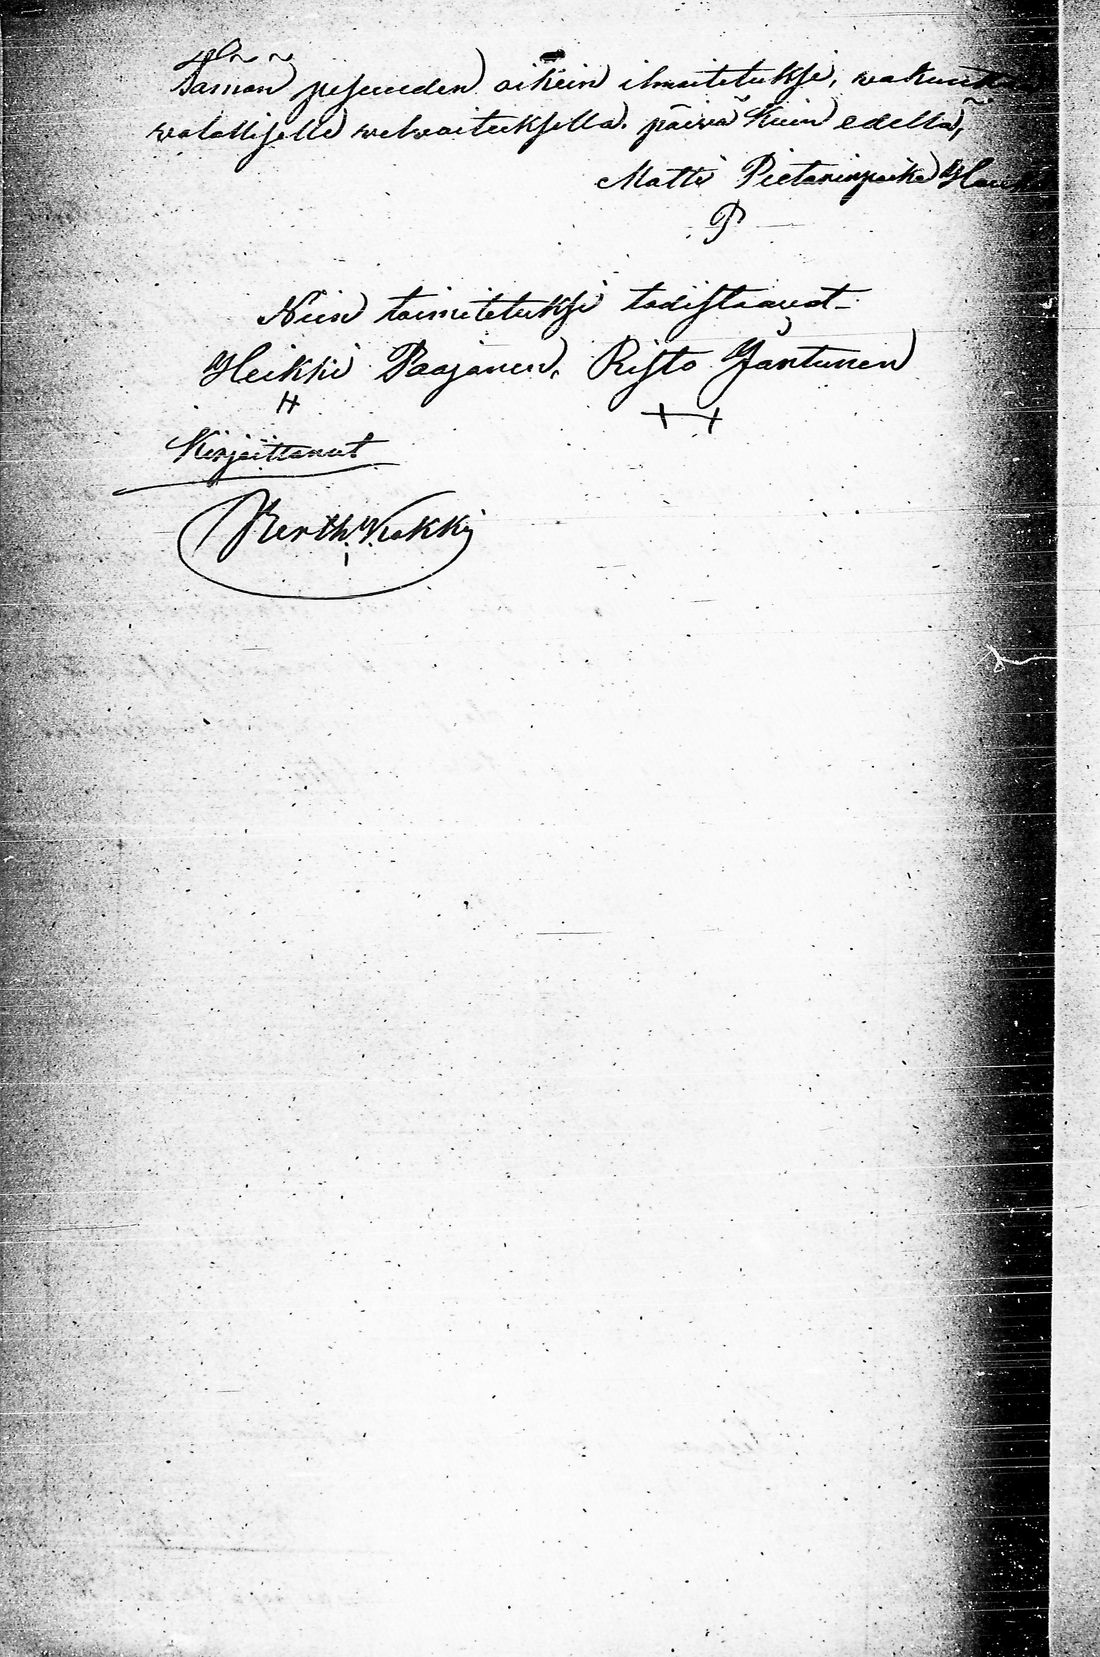 Tämän pesuuden oikein ilmoitetuksi, wakuut
walallisella welwoituksella. päivä kuin edellä,
Matti Pietarinpoika Hauk
P
Niin toimitetuksi todistaavat
Heikki Paajanen, Risto Jantunen
H
Kirjoittanut
Kokki